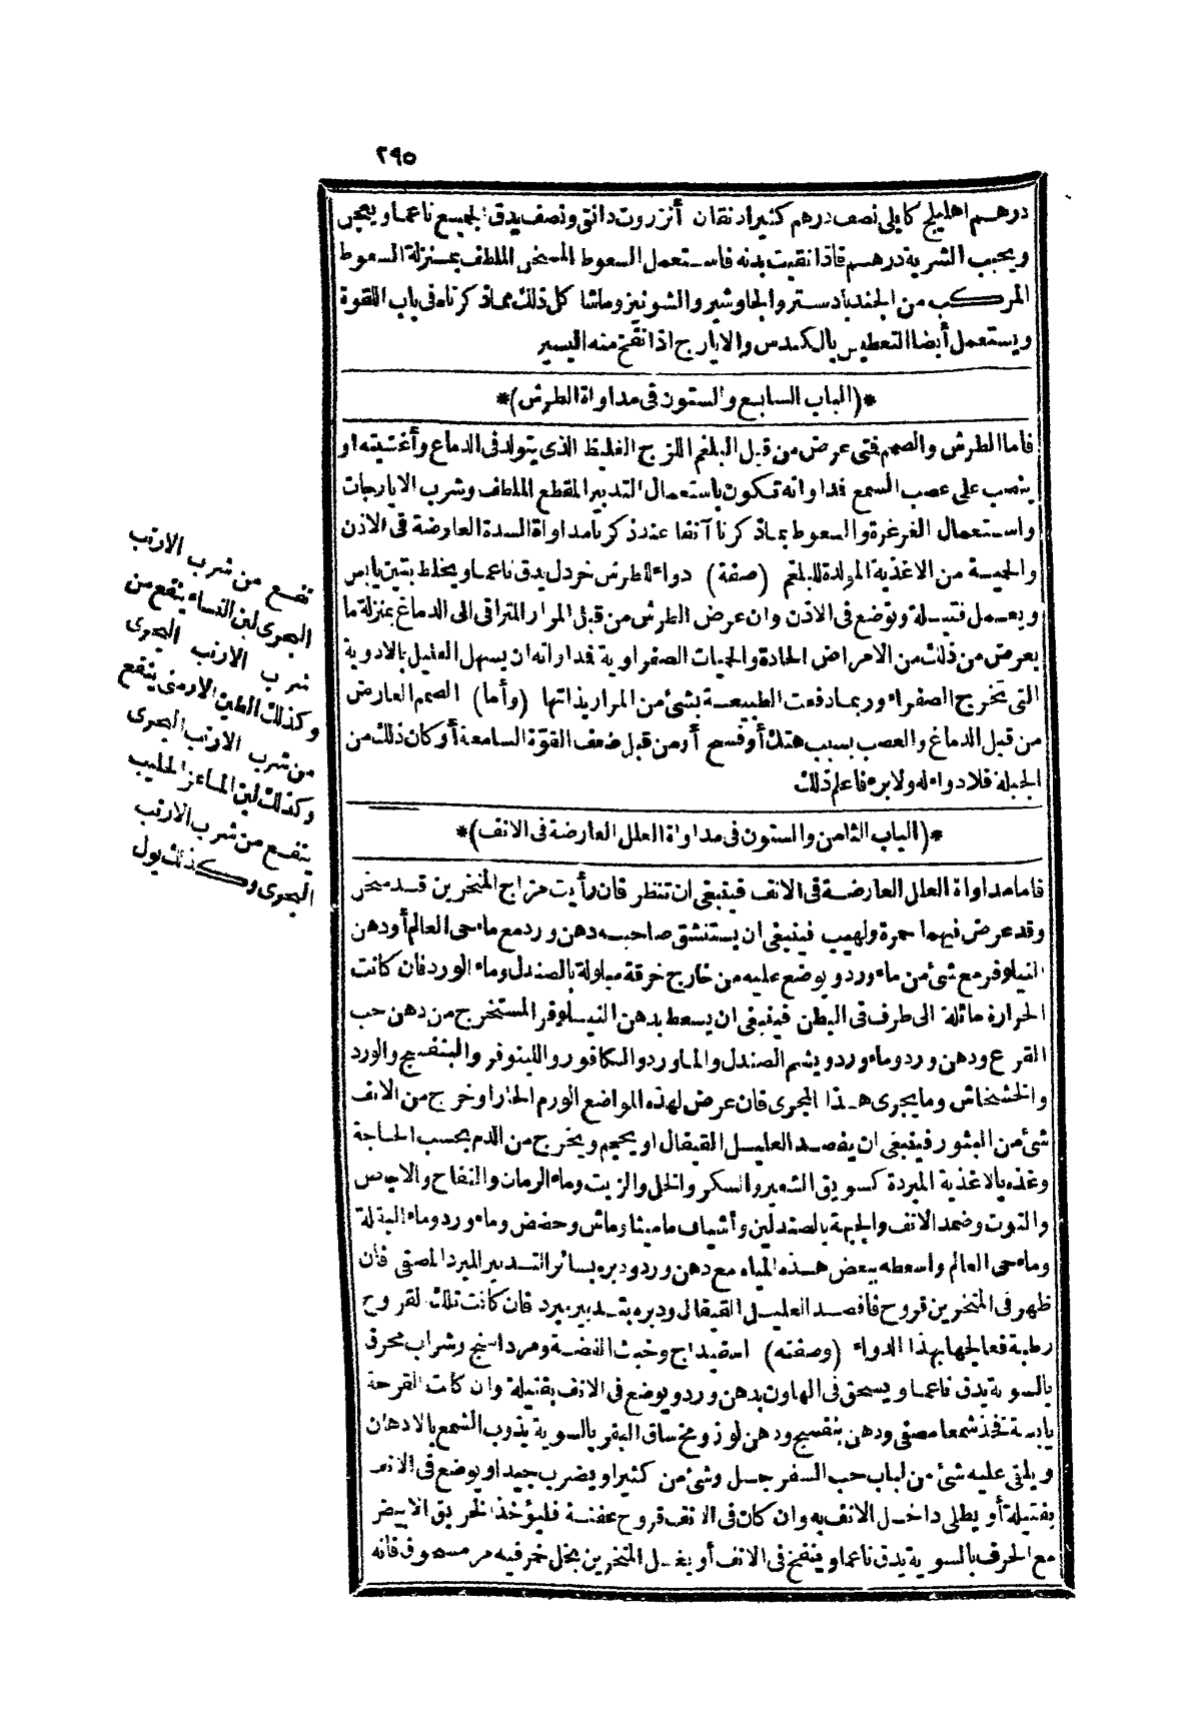 ٢٩٥
درهم اهليلج كابلى نصف درهم كثيرا دنقان أنزروت دانق ونصف يدق الجميع ناعما ويعجن
ويحبب الشربة درهم فاذا نقيت بدنه فاستعمل السعوط المسخن الملطف بمنزلة السعوط
المركب من الجندبادستر والجاوشير والشونيز وماشا كل ذلك مما ذكرناه فى باب اللقوة
ويستعمل أيضا التعطيس بالكندس والايارج اذا نفخ منه اليسير
*(الباب السابع والستون فى مداواة الطرش)*
فاما الطرش والصمم فتى عرض من قبل البلغم اللزج الغليظ الذى يتولد فى الدماغ وأغشيته او
ينصب على عصب السمع فداواته تكون باستعمال التدبير المقطع الملطف وشرب الايارجات
واستعمال الغرغرة والسعوط بماذكرنا آنفا عند ذكرنا مداواة السدة العارضة فى الاذن
والحمية من الاغذية المولدة للبلغم (صفة) دواء للطرش خردل يدق ناعما ويخلط بتين يابس
ويعمل فتيلة وتوضع فى الاذن وان عرض الطرش من قبل المرار المتراقى الى الدماغ بمنزلة ما
يعرض من ذلك من الامراض الحادة والحميات الصفراوية فداواته ان يسهل العليل بالادوية
التى تخرج الصفراء وربما دفعت الطبيعة بشئ من المرار بذاتها (وأما) الصمم العارض
من قبل الدماغ والعصب بسبب هتك أو فسخ أو من قبل ضعف القوة السامعة أو كان ذلك من
الجبلة فلا دواء له ولا برء فاعلم ذلك
*(الباب الثامن والستون فى مداواة العلل العارضة فى الانف)*
فاما مداواة العلل العارضة فى الانف فينبغى ان تنظر فان رأيت مزاج المنخرين قد سخن
وقد عرض فيهما حمرة ولهيب فينبغى ان يستنشق صاحبه دهن ورد مع ماء حى العالم أو دهن
النيلوفر مع شئ من ماء ورد ويوضع عليه من خارج خرقة مبلولة بالصندل وماء الورد فان كانت
الحرارة مائلة الى طرف فى البطن فينبغى ان يسعط بدهن النيلوفر المستخرج من دهن حب
القرع ودهن ورد وماء ورد ويشم الصندل والماورد والكافور واللينوفر والبنفسج والورد
والخشخاش وما يجرى هذا المجرى فان عرض لهذه المواضع الورم الحار او خرج من الانف
شئ من البثور فينبغى ان يفصد العليل القيفال او يحجم ويخرج من الدم بحسب الحاجة
وغذه بالاغذية المبردة كسويق الشعير والسكر والخل والزيت وماء الرمان والتفاح والاجاص
والتوت وضمد الانف والجبهة بالصندلين وأشياف ماميثا وماش وحضض وماء ورد وماء البقلة
وماء حى العالم واسعطه ببعض هذه المياه مع دهن ورد ودبره بسائر التدبير المبرد المصقى فان
ظهر فى المنخرين قروح فافصد العليل القيفال ودبره بتدبير مبرد فان كانت تلك القروح
رطبة فعالجها بهذا الدواء (وصفته) اسفيداج وخبث الفضة ومرداسنج وشراب محرق
بالسوية يدق ناعما ويسحق فى الهاون بدهن ورد ويوضع فى الانف بفتيلة وان كانت القرحة
يابسة فخذ شمعا مصفى ودهن بنفسج ودهن لوز ومخ ساق البقر بالسوية يذوب الشمع بالادهان
ويلقى عليه شئ من لباب حب السفرجل وشئ من كثيرا ويضرب جيدا ويوضع فى الانف
بفتيلة أو يطلى داخل الانف به وان كان فى الانف قروح عفنة فليؤخذ الخربق الابيض
مع الحرف بالسوية يدق ناعما وينفخ فى الانف أو يغسل المنخرين بخل خمر فيه مر مسحوق فانه
تنفع من شرب الارنب
البحرى لبن النساء ينفع من
شرب الارنب البحرى
وكذلك الطين الارمنى ينفع
من شرب الارنب البحرى
وكذلك لبن الماعز الحليب
ينفع من شرب الارنب
البحرى وكذلك بول